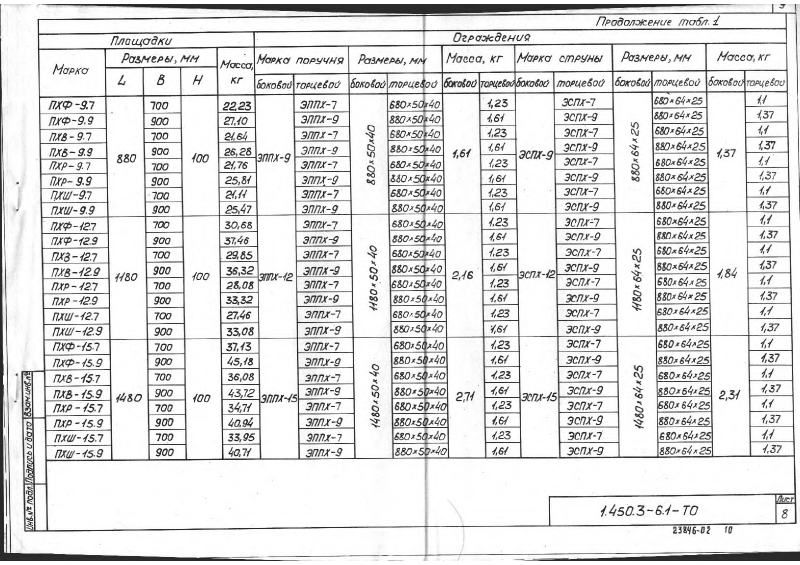 9
Продолжение табл. 1
Площадки Ограждения
Марка Размеры, мм Масса, кг Марка поручня Размеры, мм Масса, кг Марка струны Размеры, мм Масса, кг
L B H боковой торцевой боковой торцевой боковой торцевой боковой торцевой боковой торцевой боковой торцевой
ПХФ-9.7 880 700 100 22,23 ЭППХ-9 ЭППХ-7 880×50×40 680×50×40 1,61 1,23 ЭСПХ-9 ЭСПХ-7 880×64×25 680×64×25 1,37 1,1
ПХФ-9.9 900 27,10 ЭППХ-9 880×50×40 1,61 ЭСПХ-9 880×64×25 1,37
ПХВ-9.7 700 21,64 ЭППХ-7 680×50×40 1,23 ЭСПХ-7 680×64×25 1,1
ПХВ-9.9 900 26,28 ЭППХ-9 880×50×40 1,61 ЭСПХ-9 880×64×25 1,37
ПХР-9.7 700 21,76 ЭППХ-7 680×50×40 1,23 ЭСПХ-7 680×64×25 1,1
ПХР-9.9 900 25,81 ЭППХ-9 880×50×40 1,61 ЭСПХ-9 880×64×25 1,37
ПХШ-9.7 700 21,11 ЭППХ-7 680×50×40 1,23 ЭСПХ-7 680×64×25 1,1
ПХШ-9.9 900 25,47 ЭППХ-9 880×50×40 1,61 ЭСПХ-9 880×64×25 1,37
ПХФ-12.7 1180 700 100 30,68 ЭППХ-12 ЭППХ-7 1180×50×40 680×50×40 2,16 1,23 ЭСПХ-12 ЭСПХ-7 1180×64×25 680×64×25 1,84 1,1
ПХФ-12.9 900 37,46 ЭППХ-9 880×50×40 1,61 ЭСПХ-9 880×64×25 1,37
ПХВ-12.7 700 29,85 ЭППХ-7 680×50×40 1,23 ЭСПХ-7 680×64×25 1,1
ПХВ-12.9 900 36,32 ЭППХ-9 880×50×40 1,61 ЭСПХ-9 880×64×25 1,37
ПХР-12.7 700 28,08 ЭППХ-7 680×50×40 1,23 ЭСПХ-7 680×64×25 1,1
ПХР-12.9 900 33,32 ЭППХ-9 880×50×40 1,61 ЭСПХ-9 880×64×25 1,37
ПХШ-12.7 700 27,46 ЭППХ-7 680×50×40 1,23 ЭСПХ-7 680×64×25 1,1
ПХШ-12.9 900 33,08 ЭППХ-9 880×50×40 1,61 ЭСПХ-9 880×64×25 1,37
ПХФ-15.7 1480 700 100 37,13 ЭППХ-15 ЭППХ-7 1480×50×40 680×50×40 2,71 1,23 ЭСПХ-15 ЭСПХ-7 1480×64×25 680×64×25 2,31 1,1
ПХФ-15.9 900 45,18 ЭППХ-9 880×50×40 1,61 ЭСПХ-9 880×64×25 1,37
ПХВ-15.7 700 36,08 ЭППХ-7 680×50×40 1,23 ЭСПХ-7 680×64×25 1,1
ПХВ-15.9 900 43,72 ЭППХ-9 880×50×40 1,61 ЭСПХ-9 880×64×25 1,37
ПХР-15.7 700 34,71 ЭППХ-7 680×50×40 1,23 ЭСПХ-7 680×64×25 1,1
ПХР-15.9 900 40,94 ЭППХ-9 880×50×40 1,61 ЭСПХ-9 880×64×25 1,37
ПХШ-15.7 700 33,95 ЭППХ-7 680×50×40 1,23 ЭСПХ-7 680×64×25 1,1
ПХШ-15.9 900 40,71 ЭППХ-9 880×50×40 1,61 ЭСПХ-9 880×64×25 1,37
Инв.№ подл. Подпись и дата Взам.инв.№
1.450.3-6.1-ТО
Лист
8
23846-02 10